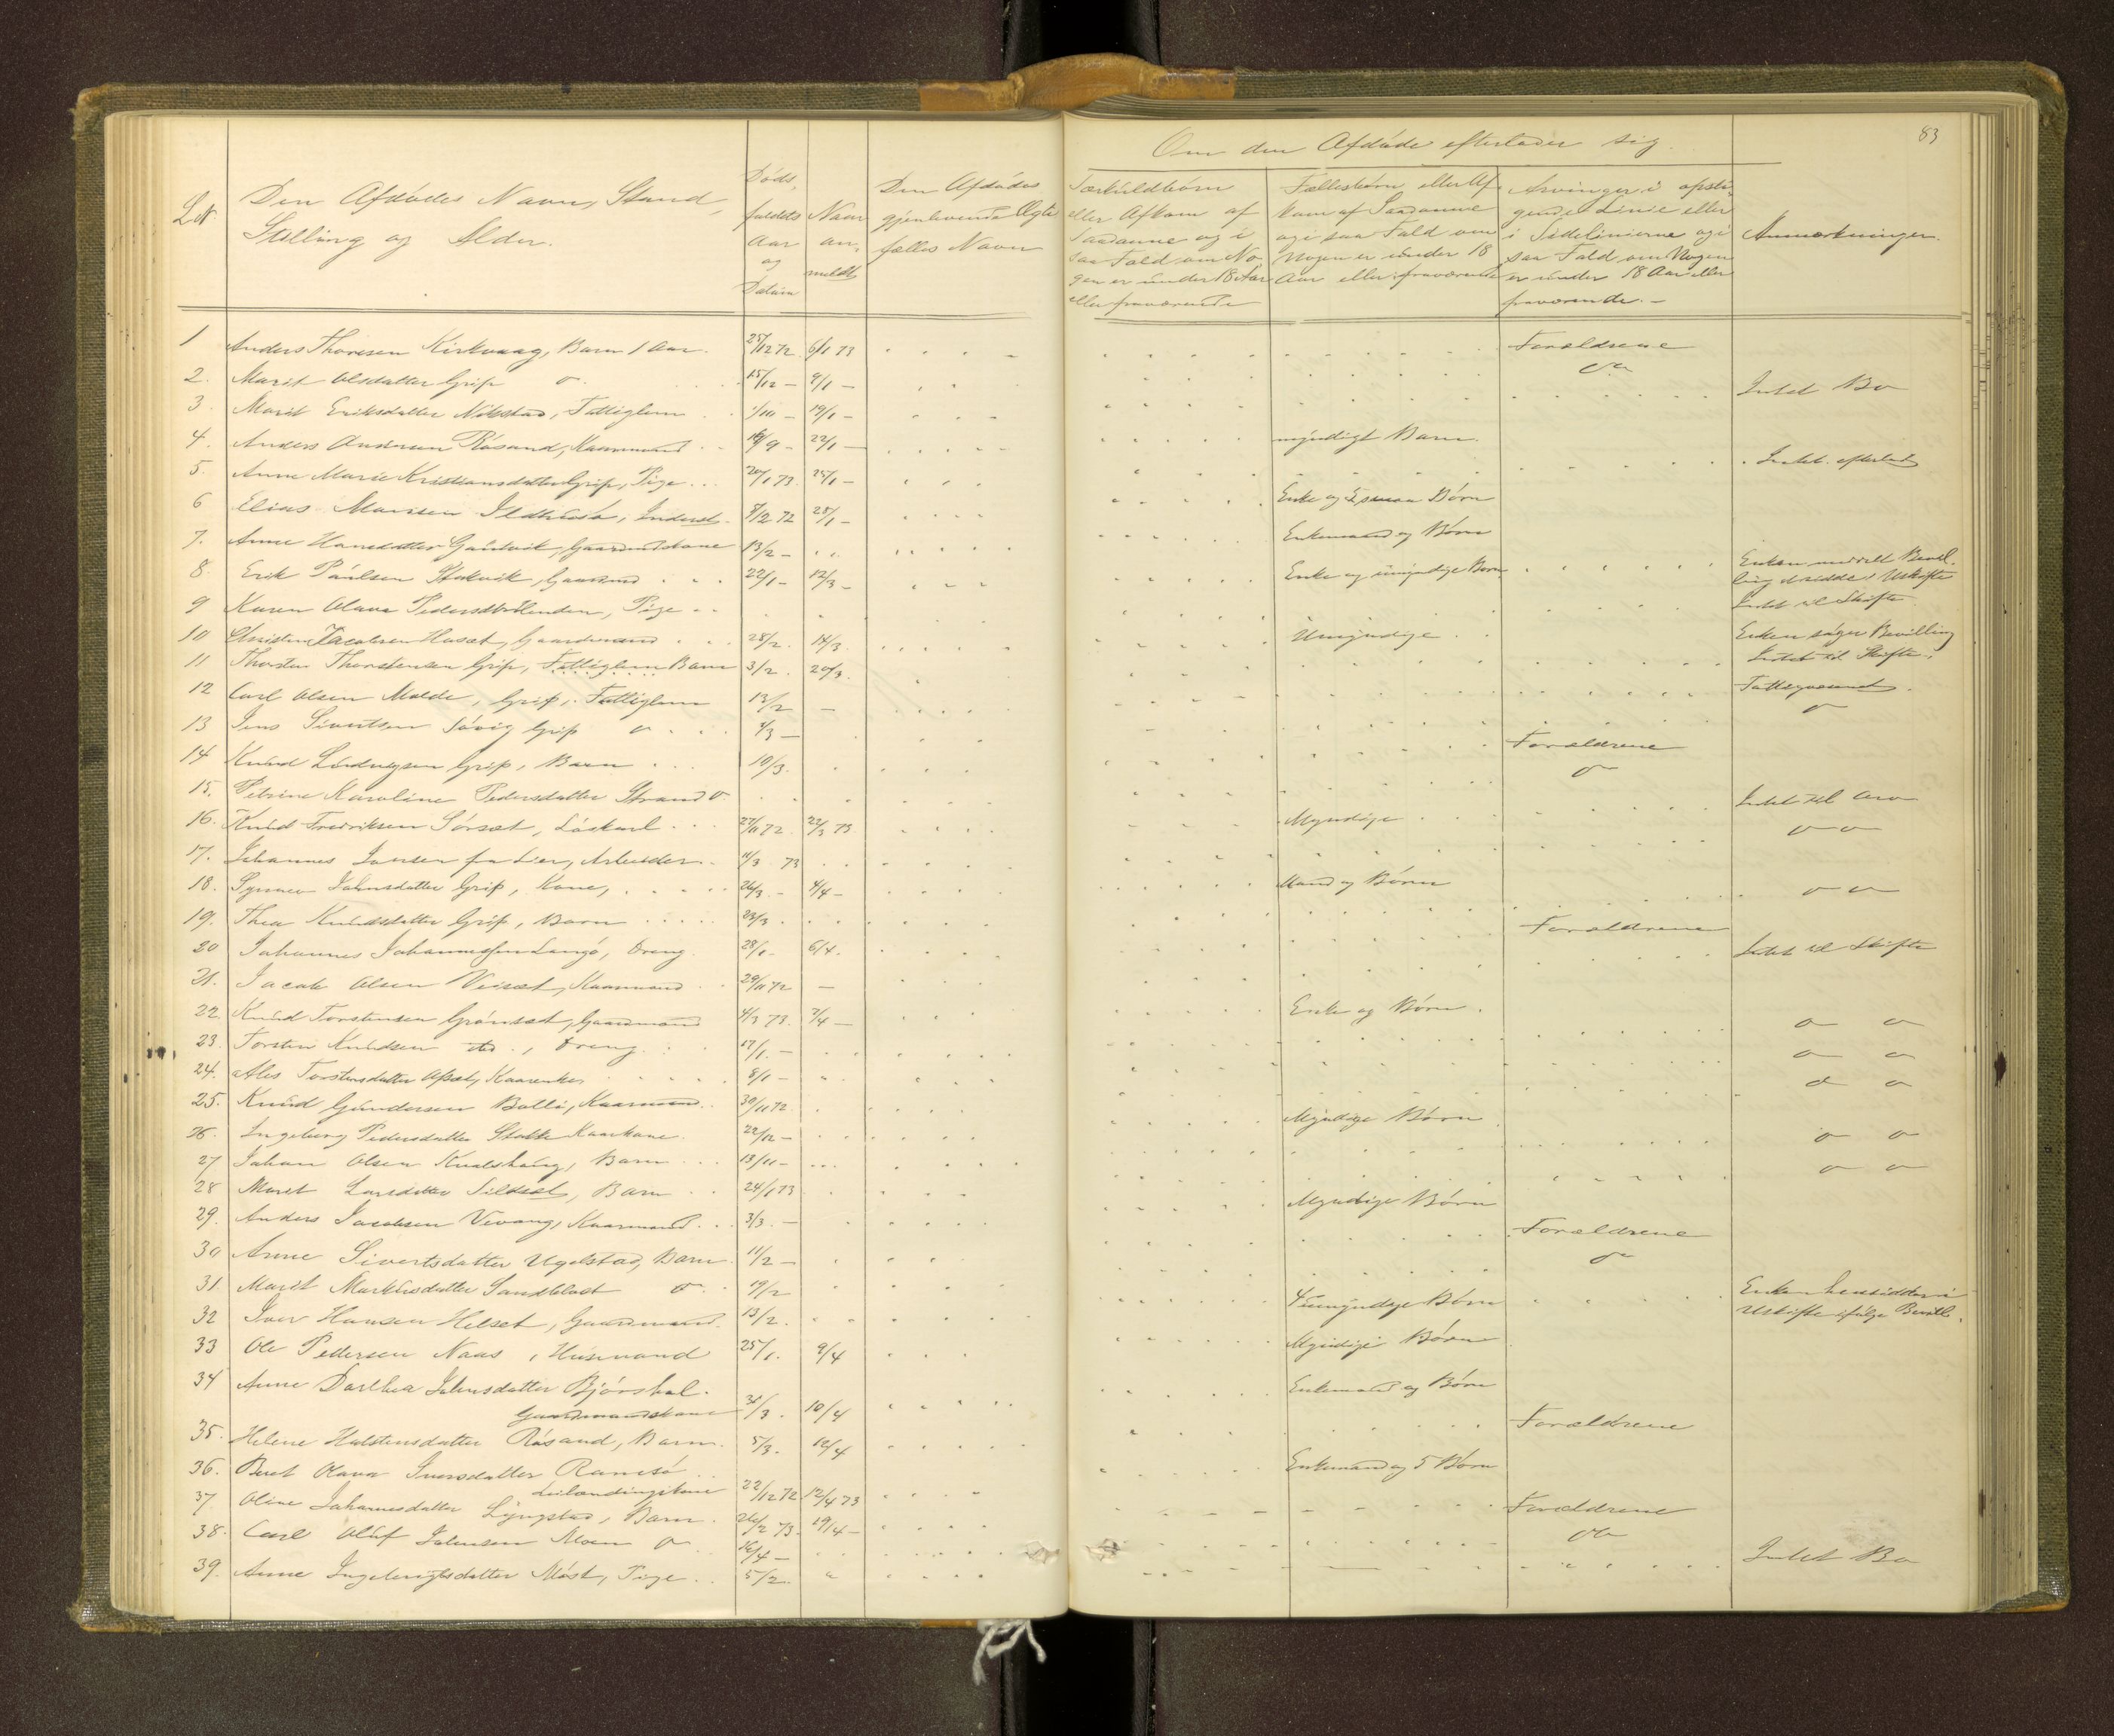 83
Om den Afdøde efterlader sig.
L№
Den Afdødes Navn, Stand,
Stilling og Alder.
Døds,
faldets
Aar
og
Datum
Naar
an,
meldt
Den Afdødes
gjenlevende Ægte
fælles Navn
Særkuldbørn
eller Afkom af
Saadanne og i
saa Fald om No,
gen er under 18 Aar
eller fraværende
Fællesbørn eller Af
kom af Saadanne
og i saa Fald om
Nogen er under 18
Aar eller fraværende
Arvinger i opsti,
gende Linie eller
i Sidelinierne og i
saa Fald om Nogen
er under 18 Aar eller
fraværende. -
Anmærkninger.
1 Anders Thoresen Kirkvaag, Barn 1 Aar. 25/12 72 6/1 73 Forældrene
2. Marit Olsdatter Grip 15/12 - 9/1 -
3. Marit Eriksdatter Nikstad, Fattiglem 1/10 - 19/1 - Intet Bo
4. Anders Andersen Røsand, Kaarmand 16/9 - 22/1 - myndigt Barn.
5. Anne Marie Kristiansdatter Grip, Pige 20/1 73 25/1 - Intet efterladt
6 Elias Monsen Ildhusø, Inderst 8/12 72 28/1 - Enke og 5 smaa Børn
7. Anne Hansdatter Gautvik, Gaardmdskone 13/2 - Enkemand og Børn
8. Erik Paulsen Stokvik, Gaardmd 22/1 - 12/3 - Enke og umyndige Børn Enken meddelt Bevil-
ling t sidde i Uskifte
9 Karen Olava Pedersdtr Henden, Pige Intet til Skifte
10 Christen Jacobsen Huset, Gaardmand 28/2. 14/3. Umyndige Enken søger Bevilling
11 Thorsten Thorstensen Grip, Fattiglem Barn 3/2. 20/3. Intet til Skifte
12 Carl Olsen Molde, Grip, Fattiglem 13/2 - Fattigvæsenet
13 Jens Sivertsen Søvig Grip 4/3 -
14 Knud Ludvigsen Grip, Barn 10/3. Forældrene
15. Petrine Karoline Pedersdatter Strand
16. Knud Fredriksen Sørsæt, Løskarl 27/11 72 22/3 73. Myndige Intet til Arv
17. Johannes Jonsen fra Lier, Arbeider 11/3 73
18. Synnev Johnsdatter Grip, Kone, 26/3. - 4/4 - Mand og Børn
19. Thea Knudsdatter Grip, Barn 23/3. Forældrene
20 Johannes Johannessen Langø, Dreng 28/1 - 6/4. Intet til Skifte
21. Jacob Olsen Veiset, Kaarmand 29/11 72 -
22. Knud Torstensen Grønset, Gaardmand 4/3 73. 7/4 - Enke og Børn.
23. Torsten Knudsen do., Dreng 17/1. -
24. Ales Torstensdatter Opset, Kaarenke 8/1 -
25. Knud Gundersen Bolli, Kaarmand 30/11 72. Myndige Børn
26. Ingeborg Pedersdatter Stokke Kaarkone 22/12 -
27 Johan Olsen Kvalshaug, Barn 13/11 -
28 Marit Larsdatter Sildset, Barn 24/1 73
29. Anders Jacobsen Vevang, Kaarmand 3/3. - Myndige Børn
30 Anne Sivertsdatter Ugelstad, Barn 11/2 - Forældrene
31. Marit Markusdatter Sandblost 19/2
32 Iver Hansen Helset, Gaardmand. 13/2. 4 umyndige Børn Enken hensidder i
Uskifte ifølge Bevill.
33 Ole Pedersen Naas, Husmand 25/1. 9/4 Myndige Børn
34 Anne Dorthea Johnsdatter Bjørshol.
Gaardmandskone 31/3. 10/4 Enkemand og Børn
35. Helene Halstensdatter Røsand, Barn. 5/3. 12/4 Forældrene
36. Beret Olava Iversdatter Ramsø
Leilændingskone 22/12 72 12/4 73 Enkemand og 5 Børn
37. Oline Johannesdatter Lyngstad, Barn. 26/2 73. 19/4 - Forældrene
38. Carl Oluf Johnsen Moen 16/4 -
39. Anne Ingebrigtsdatter Møst, Pige 5/2. Intet Bo